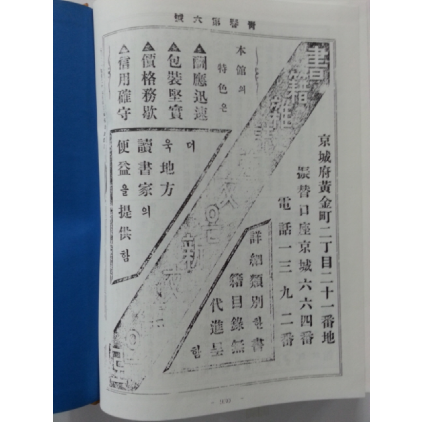 靑春第六號
京城府黃金町二丁目二十一番地
振替口座京城六六四番
電話一三九二番
書籍雜誌 은 新文館
詳細類別한書
籍目錄無
代進呈함
本舘의
特色은
▲酬應迅速
▲包裝堅實
▲價格務歇
▲信用確守
더
욱地方
讀書家의
便益을提供함